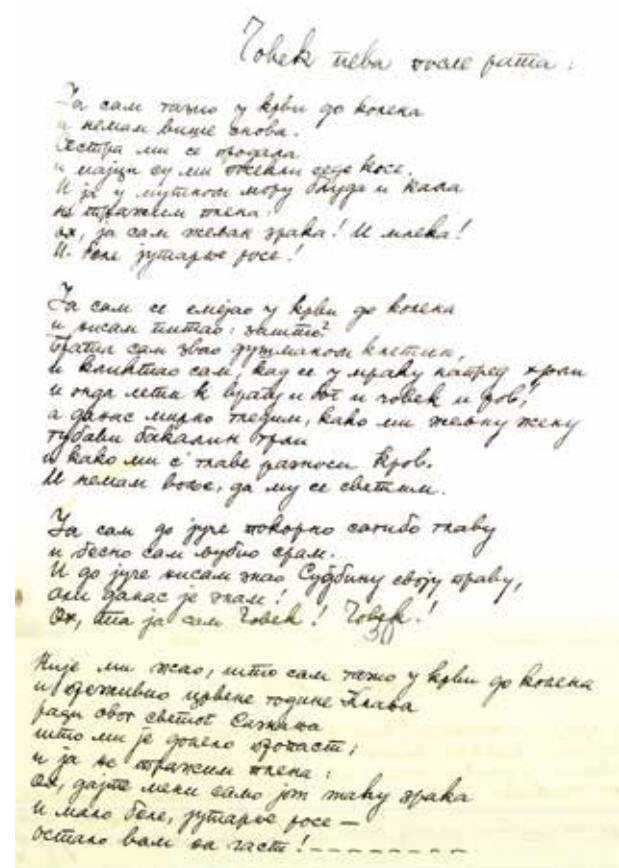 Човек пева после рата:
Ја сам газио у крви до колена
и немам више снова.
Сестра ми се продала
и мајци су ми посекли седе косе.
И ја у мутном мору блуда и кала
не тражим плена:
ох, ја сам жељан зрака! И млека!
И беле јутарње росе!
Ја сам се смејао у крви до колена
и нисам питао: зашто?
Брата сам звао душманом клетим,
и кликтао сам, кад се у мраку напред хрли
и онда лети к врагу и бог и човек и ров!
а данас мирно гледим, како ми жељну жену
губави бакалин грли
и како ми с' главе разноси кров.
И немам воље, да му се светим.
Ја сам до јуче покорно сагибо главу
и бесно сам љубио срам.
И до јуче нисам знао Судбину своју праву,
али данас је знам!
Ох, та ја сам Човек! Човек!
Није ми жао, што сам газио у крви до колена
и преживио црвене године Клања
ради овог светог Сазнања
што ми је донело пропасти;
и ја не тражим плена:
ох, дајте мени само још шаку зрака
и мало беле, јутарње росе —
остало вам на част! - - - - - - - - -